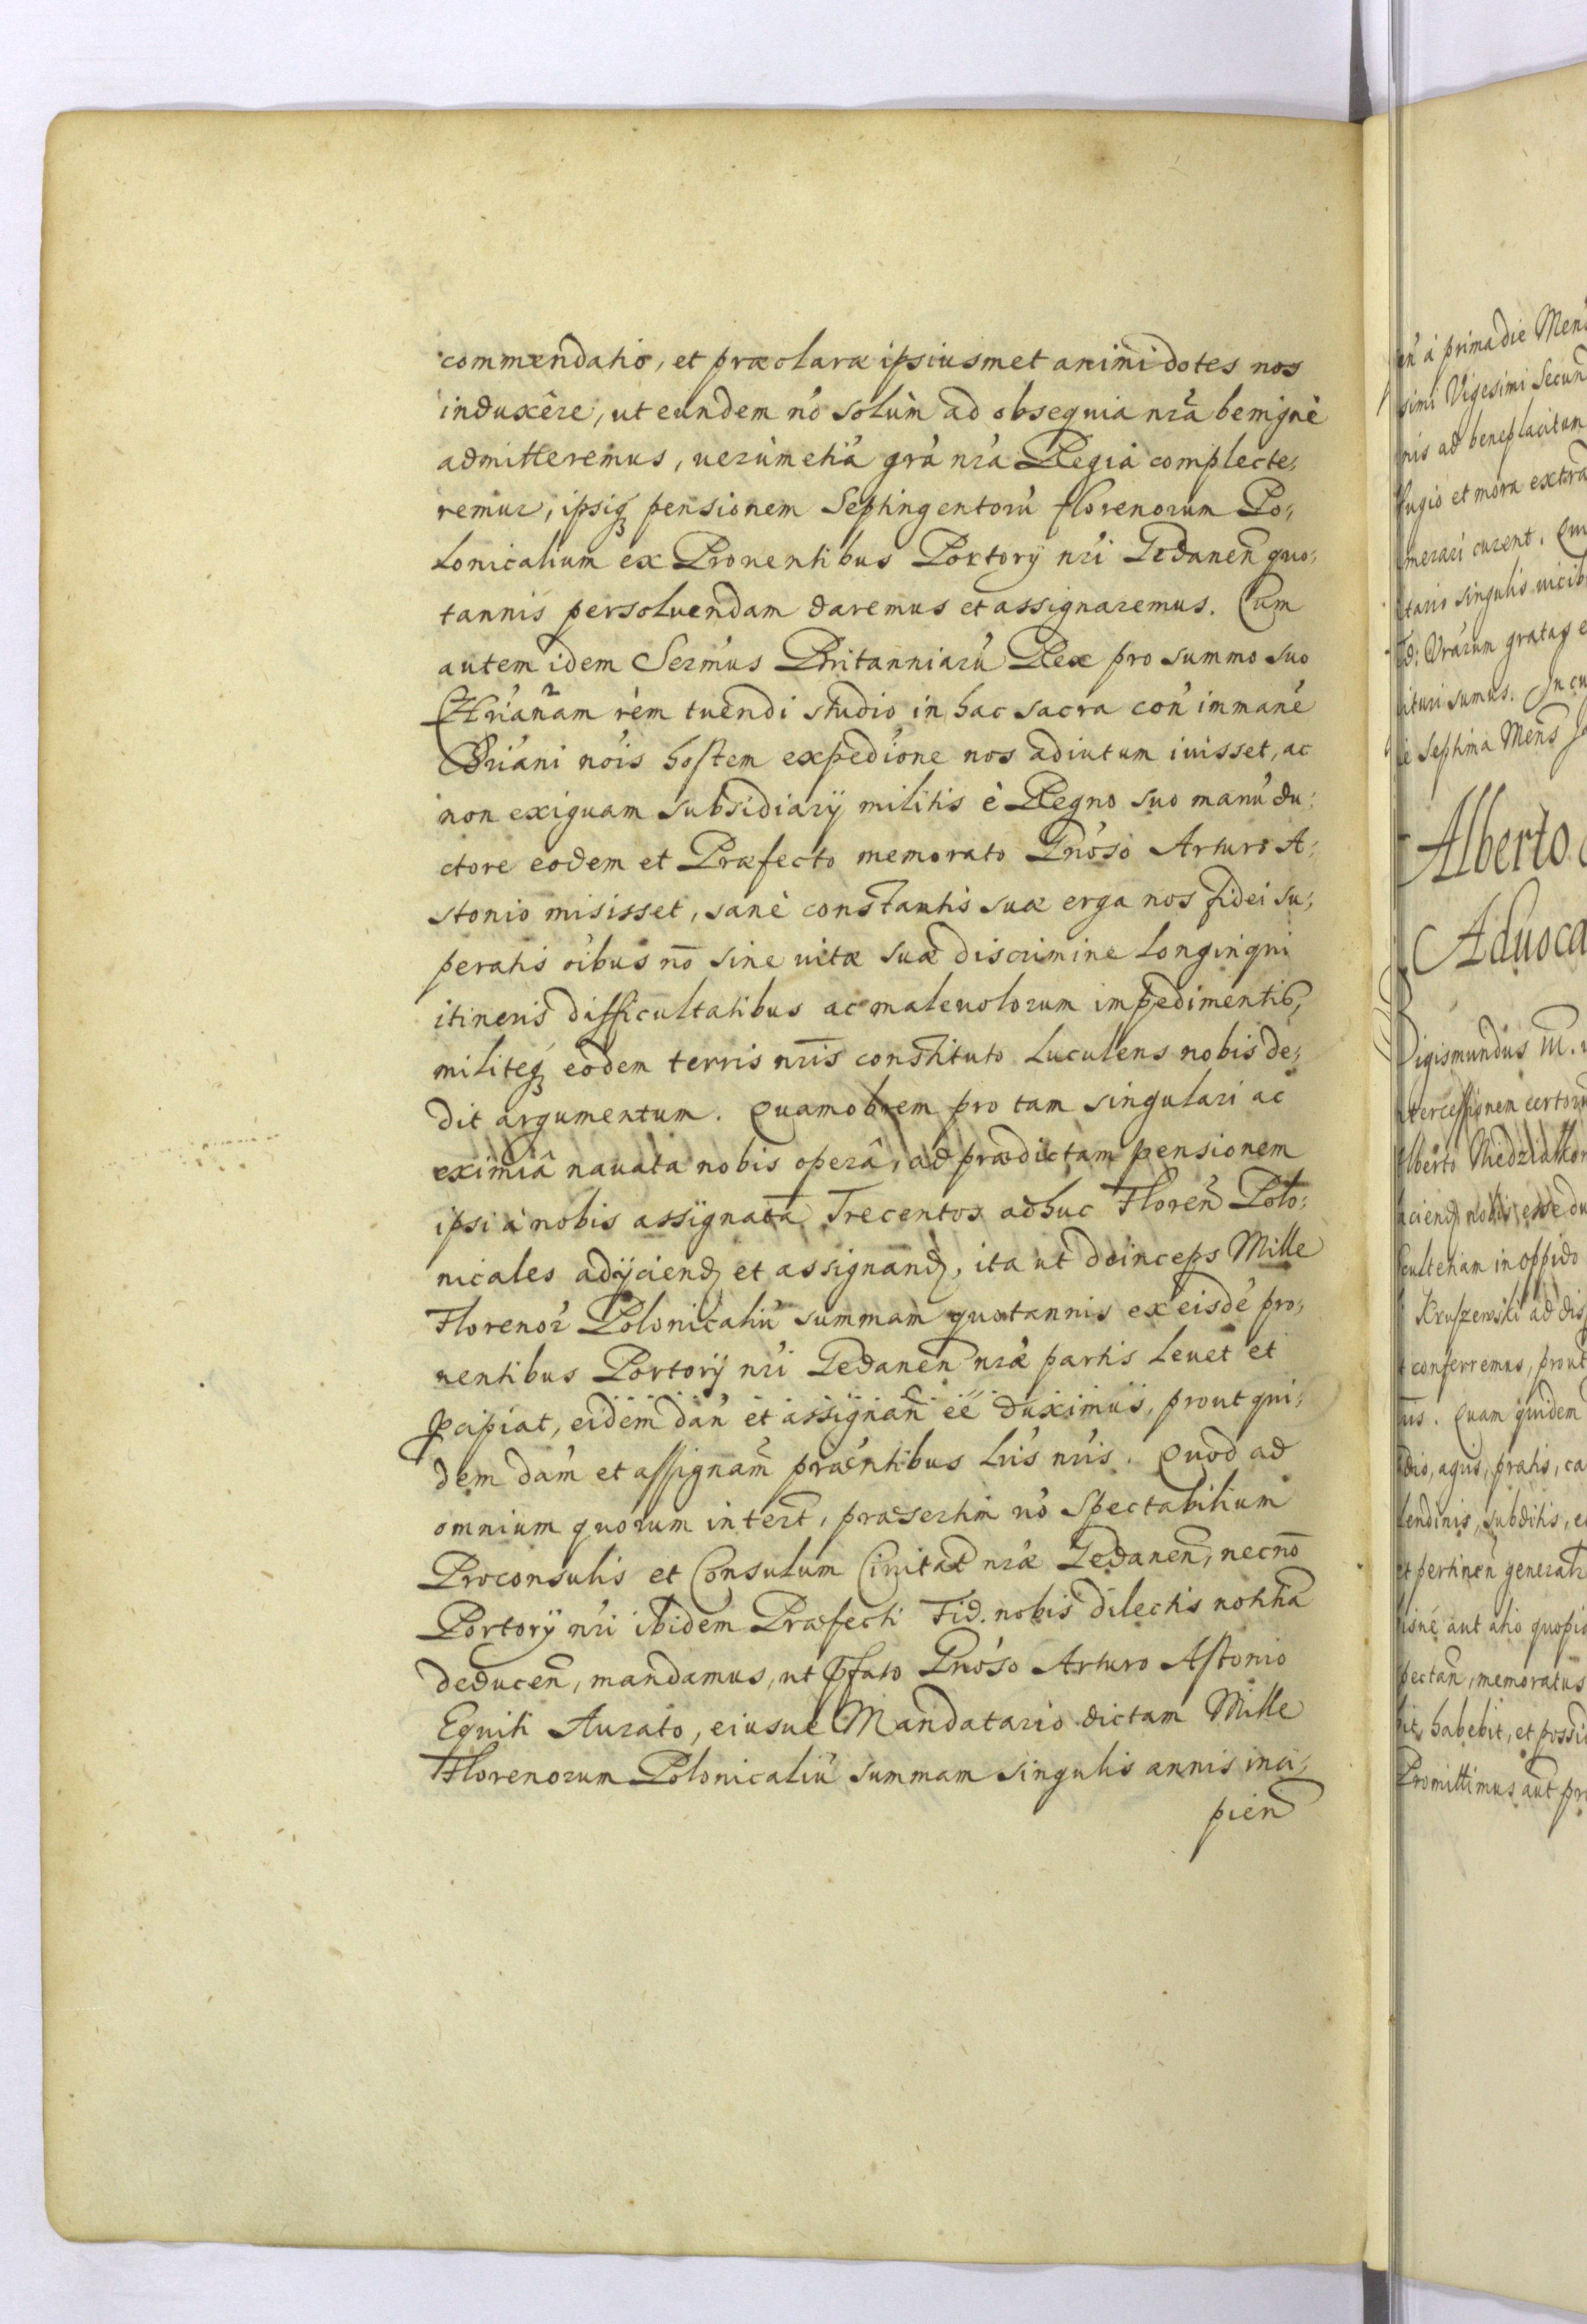 commendatio, et præclaræ ipsiusmet animi dotes nos
induxêre, ut eundem nõ solùm ad obsequia nr̃a benignè
admitteremus, uerùmetiã grã nr̃a Regia complecte;
remur, ipsiq́ȝ pensionem Septingentorũ florenorum Po;
lonicalium ex Prouentibus Portorÿ nr̃i Gedanen̄ quo;
tannis persoluendam daremus et assignaremus. Cum
autem idem Serm̃us Britanniarũ Rex pro summo suo
Chr̃ianam rem tuendi studio in hac sacra con̄ immanẽ
Chr̃iani nõis hostem expedĩone nos adiutum iuisset, ac
non exiguam subsidiarÿ militis è Regno suo manũ du;
ctore eodem et Præfecto memorato Gnõso Arturo A;
stonio misisset, sanè constantis suæ erga nos fidei su;
peratis õibus nō sine uitæ suæ discrimine longinqui
itineris difficultatibus ac maleuolorum impedimentib9,
militeqȝ eodem terris nr̃is constituto luculens nobis de;
dit argumentum. Quamobrem pro tam singulari ac
eximiâ nauata nobis operâ, ad prædictam pensionem
ipsi à nobis assignatã Trecentos adhuc Floren̄ Polo;
nicales adÿciend̄ et assignand̄, ita ut deinceps Mille
Florenor̃ Polonicaliũ summam quotannis ex eisdẽ pro;
uentibus Portorÿ nr̃i Gedanen̄ nr̃æ partis leuet et
ꝑcipiat, eidem dan̄ et assignan̄ eẽ duximus, prout qui;
dem dam̃ et assignam̃ præñtibus lr̃is nr̃is. Quod ad
omnium quorum interẽt, præsertim uõ Spectabilium
Proconsulis et Consulum Ciuitat̄ nr̃æ Gedanen̄, necnō
Portorÿ nr̃i ibidem Præfecti Fid. nobis dilectis notitiã
deducen̄, mandamus, ut p̄fato Gnõso Arturo Astonio
Equiti Aurato, eiusue Mandatario dictam Mille
Florenorum Polonicaliũ summam singulis annis inci;
pien̄
en̄ à prima die Mens
simi Vigesimi Secun
nis ad beneplacitum
fugio et mora extra
merari curent.
tario singulis uicib
grataq e
ituri sumus. In cu
Septima Mens̃
Alberto
Aduoca
Sigismundus III.
ntercessionem certoru
Alberto
nobis esse du
cultetiam in oppido
ad dis
conferremus, prout
quidem
agris, pratis, ca
subditis, e
et pertinen̄ general
aut alio quopia
pectan̄, memoratus
habebit, et possid
Promittimus aũt pr